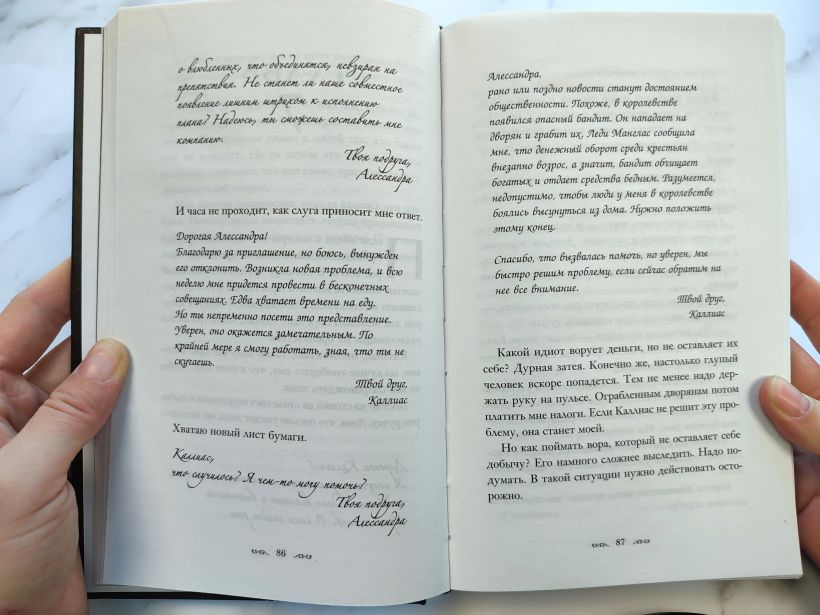 о влюбленных, что объединятся, невзирая на
препятствия. Не станет ли наше совместное
появление лишним штрихом к исполнению
плана? Надеюсь, ты сможешь составить мне
компанию.
Твоя подруга,
Алессандра
И часа не проходит, как слуга приносит мне ответ.
Дорогая Алессандра!
Благодарю за приглашение, но боюсь, вынужден
его отклонить. Возникла новая проблема, и всю
неделю мне придется провести в бесконечных
совещаниях. Едва хватает времени на еду.
Но ты непременно посети это представление.
Уверен, оно окажется замечательным. По
крайней мере я смогу работать, зная, что ты не
скучаешь.
Твой друг,
Каллиас
Хватаю новый лист бумаги.
Каллиас,
что случилось? Я чем-то могу помочь?
Твоя подруга,
Алессандра
86
Алессандра,
рано или поздно новости станут достоянием
общественности. Похоже, в королевстве
появился опасный бандит. Он нападает на
дворян и грабит их. Леди Манглас сообщила
мне, что денежный оборот среди крестьян
внезапно возрос, а значит, бандит обчищает
богатых и отдает средства бедным. Разумеется,
недопустимо, чтобы люди у меня в королевстве
боялись высунуться из дома. Нужно положить
этому конец.
Спасибо, что вызвалась помочь, но уверен, мы
быстро решим проблему, если сейчас обратим на
нее все внимание.
Твой друг,
Каллиас
Какой идиот ворует деньги, но не оставляет их
себе? Дурная затея. Конечно же, настолько глупый
человек вскоре попадется. Тем не менее надо дер-
жать руку на пульсе. Ограбленным дворянам потом
платить мне налоги. Если Каллиас не решит эту про-
блему, она станет моей.
Но как поймать вора, который не оставляет себе
добычу? Его намного сложнее выследить. Надо по-
думать. В такой ситуации нужно действовать осто-
рожно.
87